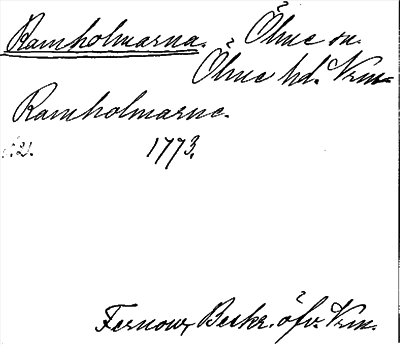 Ramholmarna. Ölme sn.
Ölme hd. Vrm.
Ramholmarne.
s. 21. 1773.
Fernow, Beskr. öfv. Vrm.